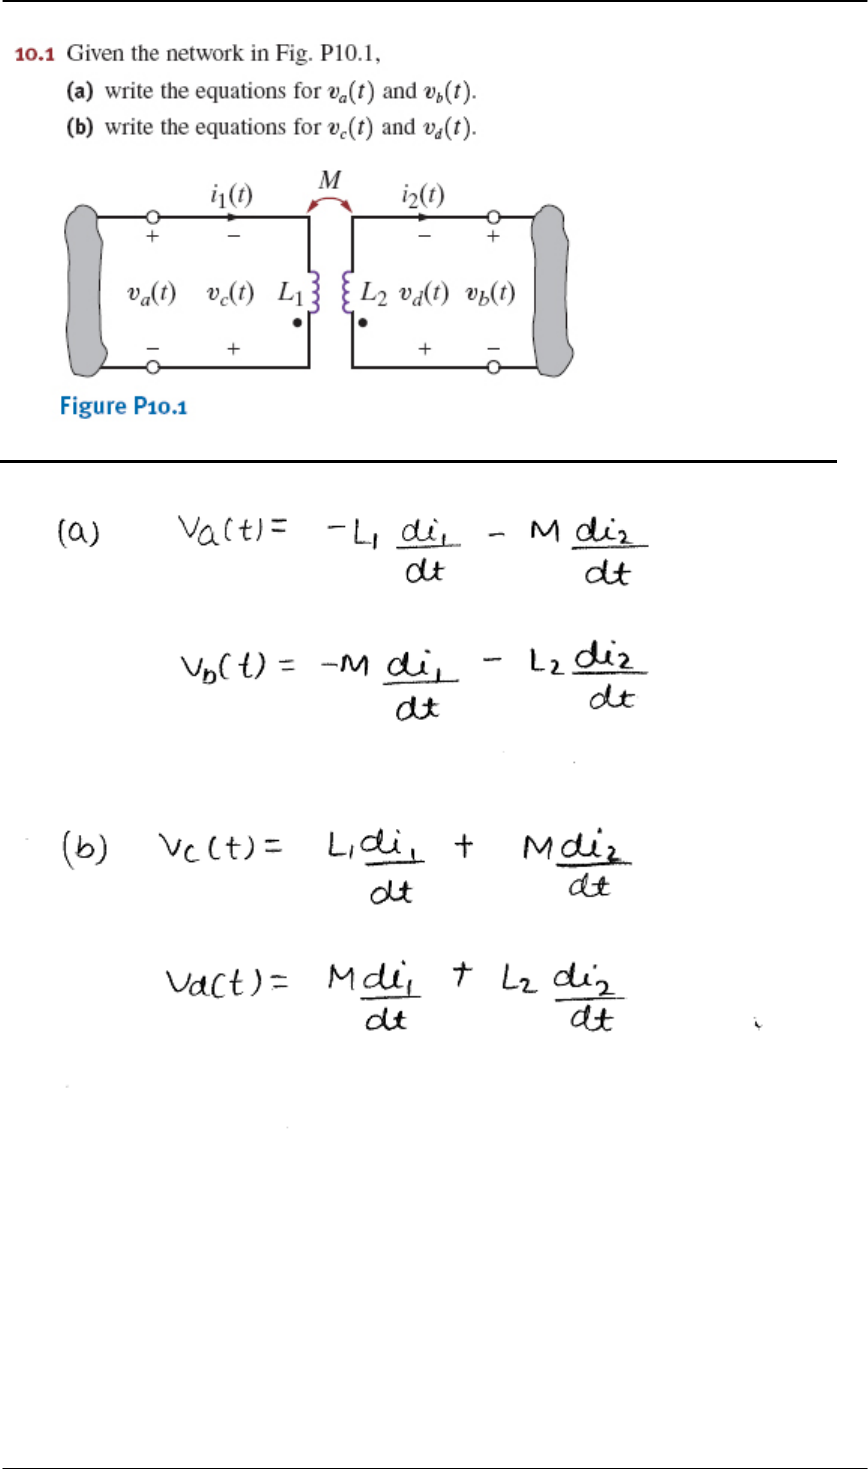 10.1 Given the network in Fig. P10.1,
(a) write the equations for vₐ(t) and v_b(t).
(b) write the equations for v_c(t) and v_d(t).
M
i₁(t) i₂(t)
+ − − +
vₐ(t) v_c(t) L₁ L₂ v_d(t) v_b(t)
− + + −
Figure P10.1
(a) Va(t) = -L₁ di₁/dt - M di₂/dt
Vb(t) = -M di₁/dt - L₂ di₂/dt
(b) Vc(t) = L₁ di₁/dt + M di₂/dt
Vd(t) = M di₁/dt + L₂ di₂/dt